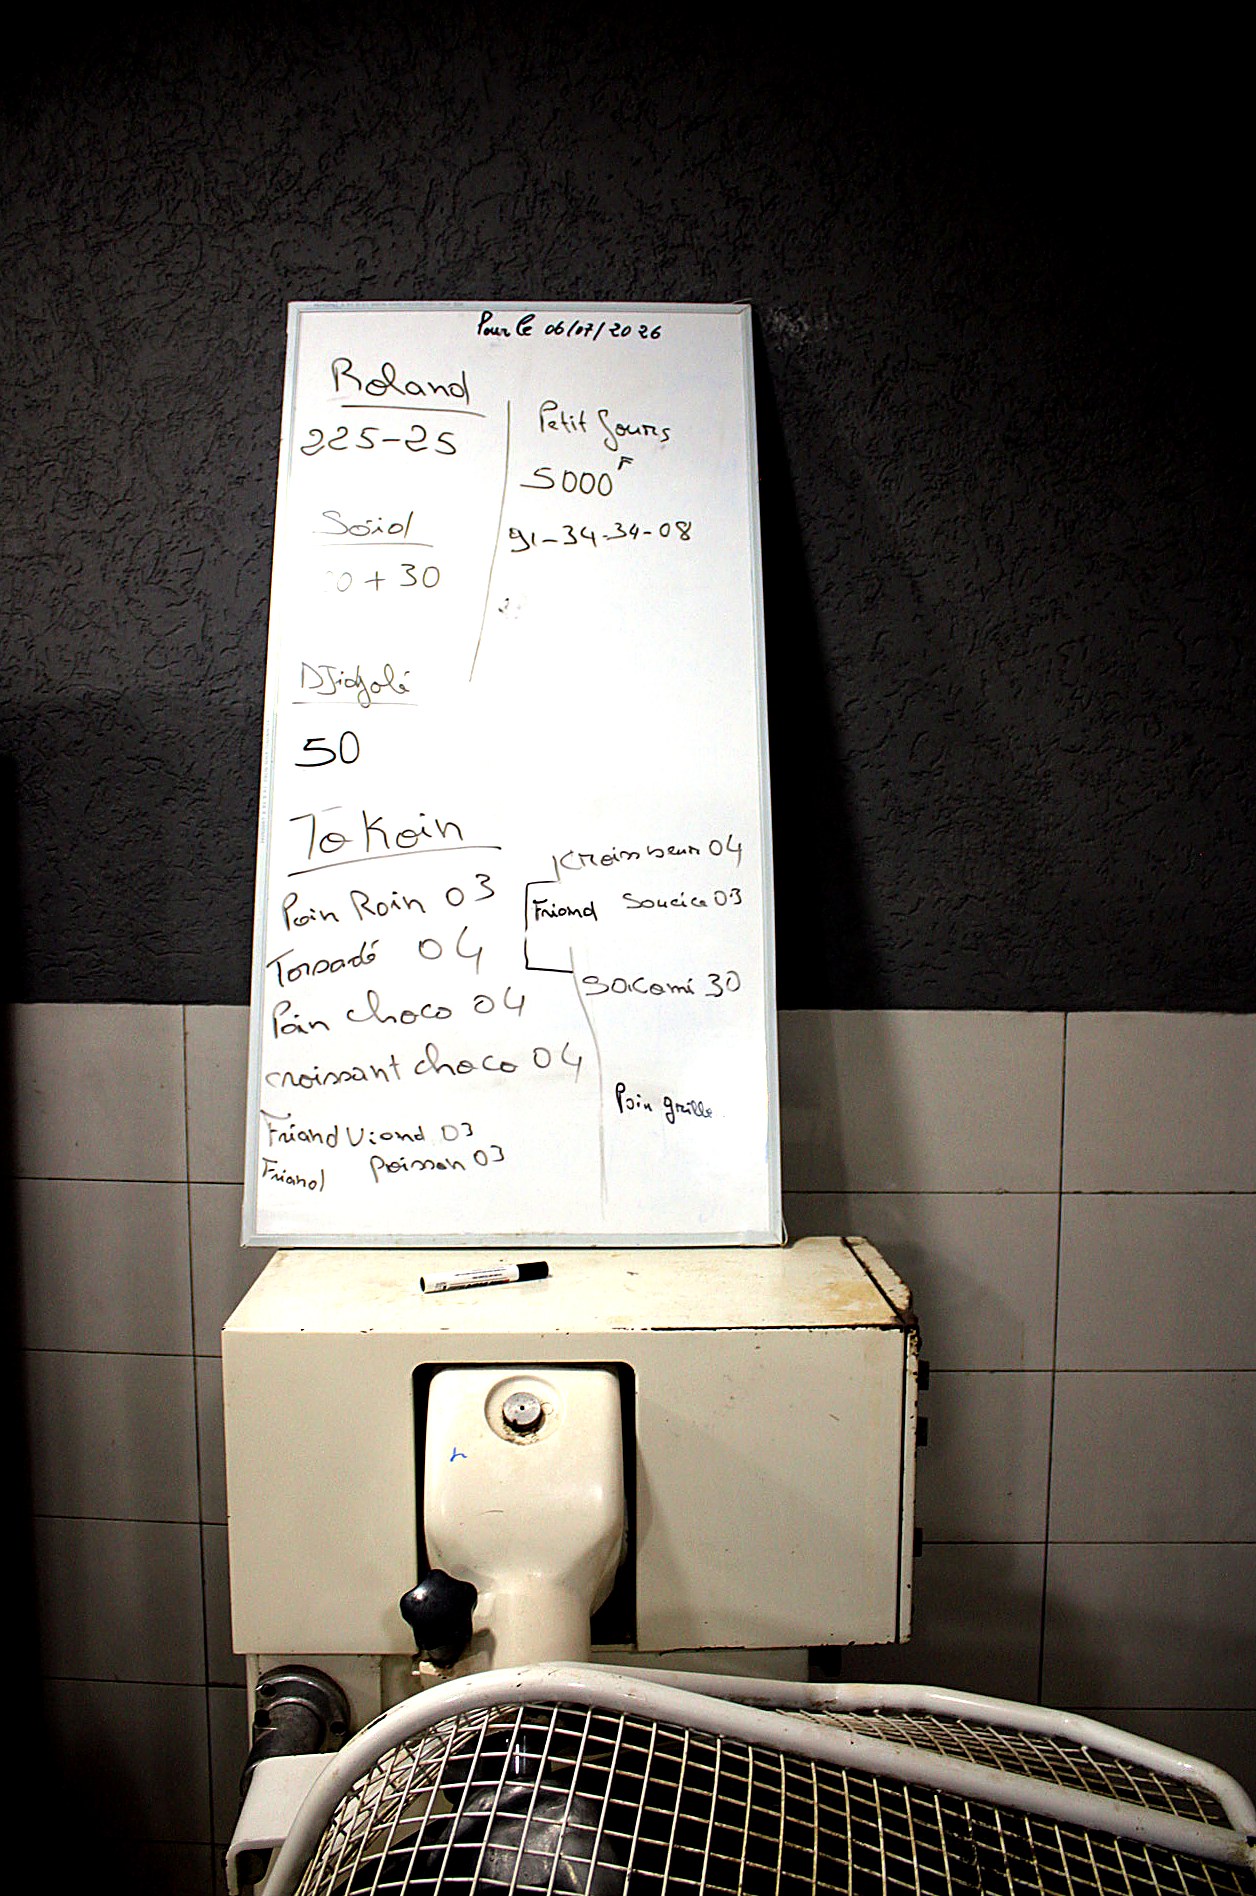 Pour le 06/07/2026
Roland
225-25
Soid
0 + 30
Djidjolé
50
Petit fours
5000 F
91-34-34-08
To Koin
Pain Roin 03
Torsadé 04
Pain choco 04
croissant choco 04
Friand Viand 03
Friand Poisson 03
04
Friand Soucice 03
30
Pain grille